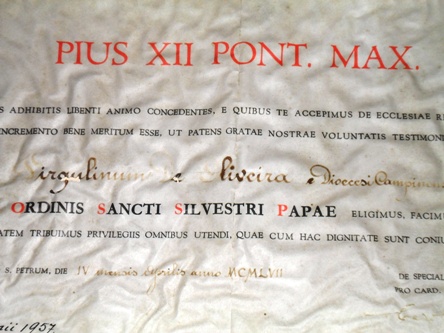 PIUS XII PONT. MAX.
S ADHIBITIS LIBENTI ANIMO CONCEDENTES, E QUIBUS TE ACCEPIMUS DE ECCLESIAE R
INCREMENTO BENE MERITUM ESSE, UT PATENS GRATAE NOSTRAE VOLUNTATIS TESTIMONI
Virgulinum de Oliveira e Dioecesi Campine
ORDINIS SANCTI SILVESTRI PAPAE ELIGIMUS, FACIMU
ATEM TRIBUIMUS PRIVILEGIIS OMNIBUS UTENDI, QUAE CUM HAC DIGNITATE SUNT CONIU
S. PETRUM, DIE IV mensis Aprilis anno MCMLVII
DE SPECIAL
PRO CARD.
1957